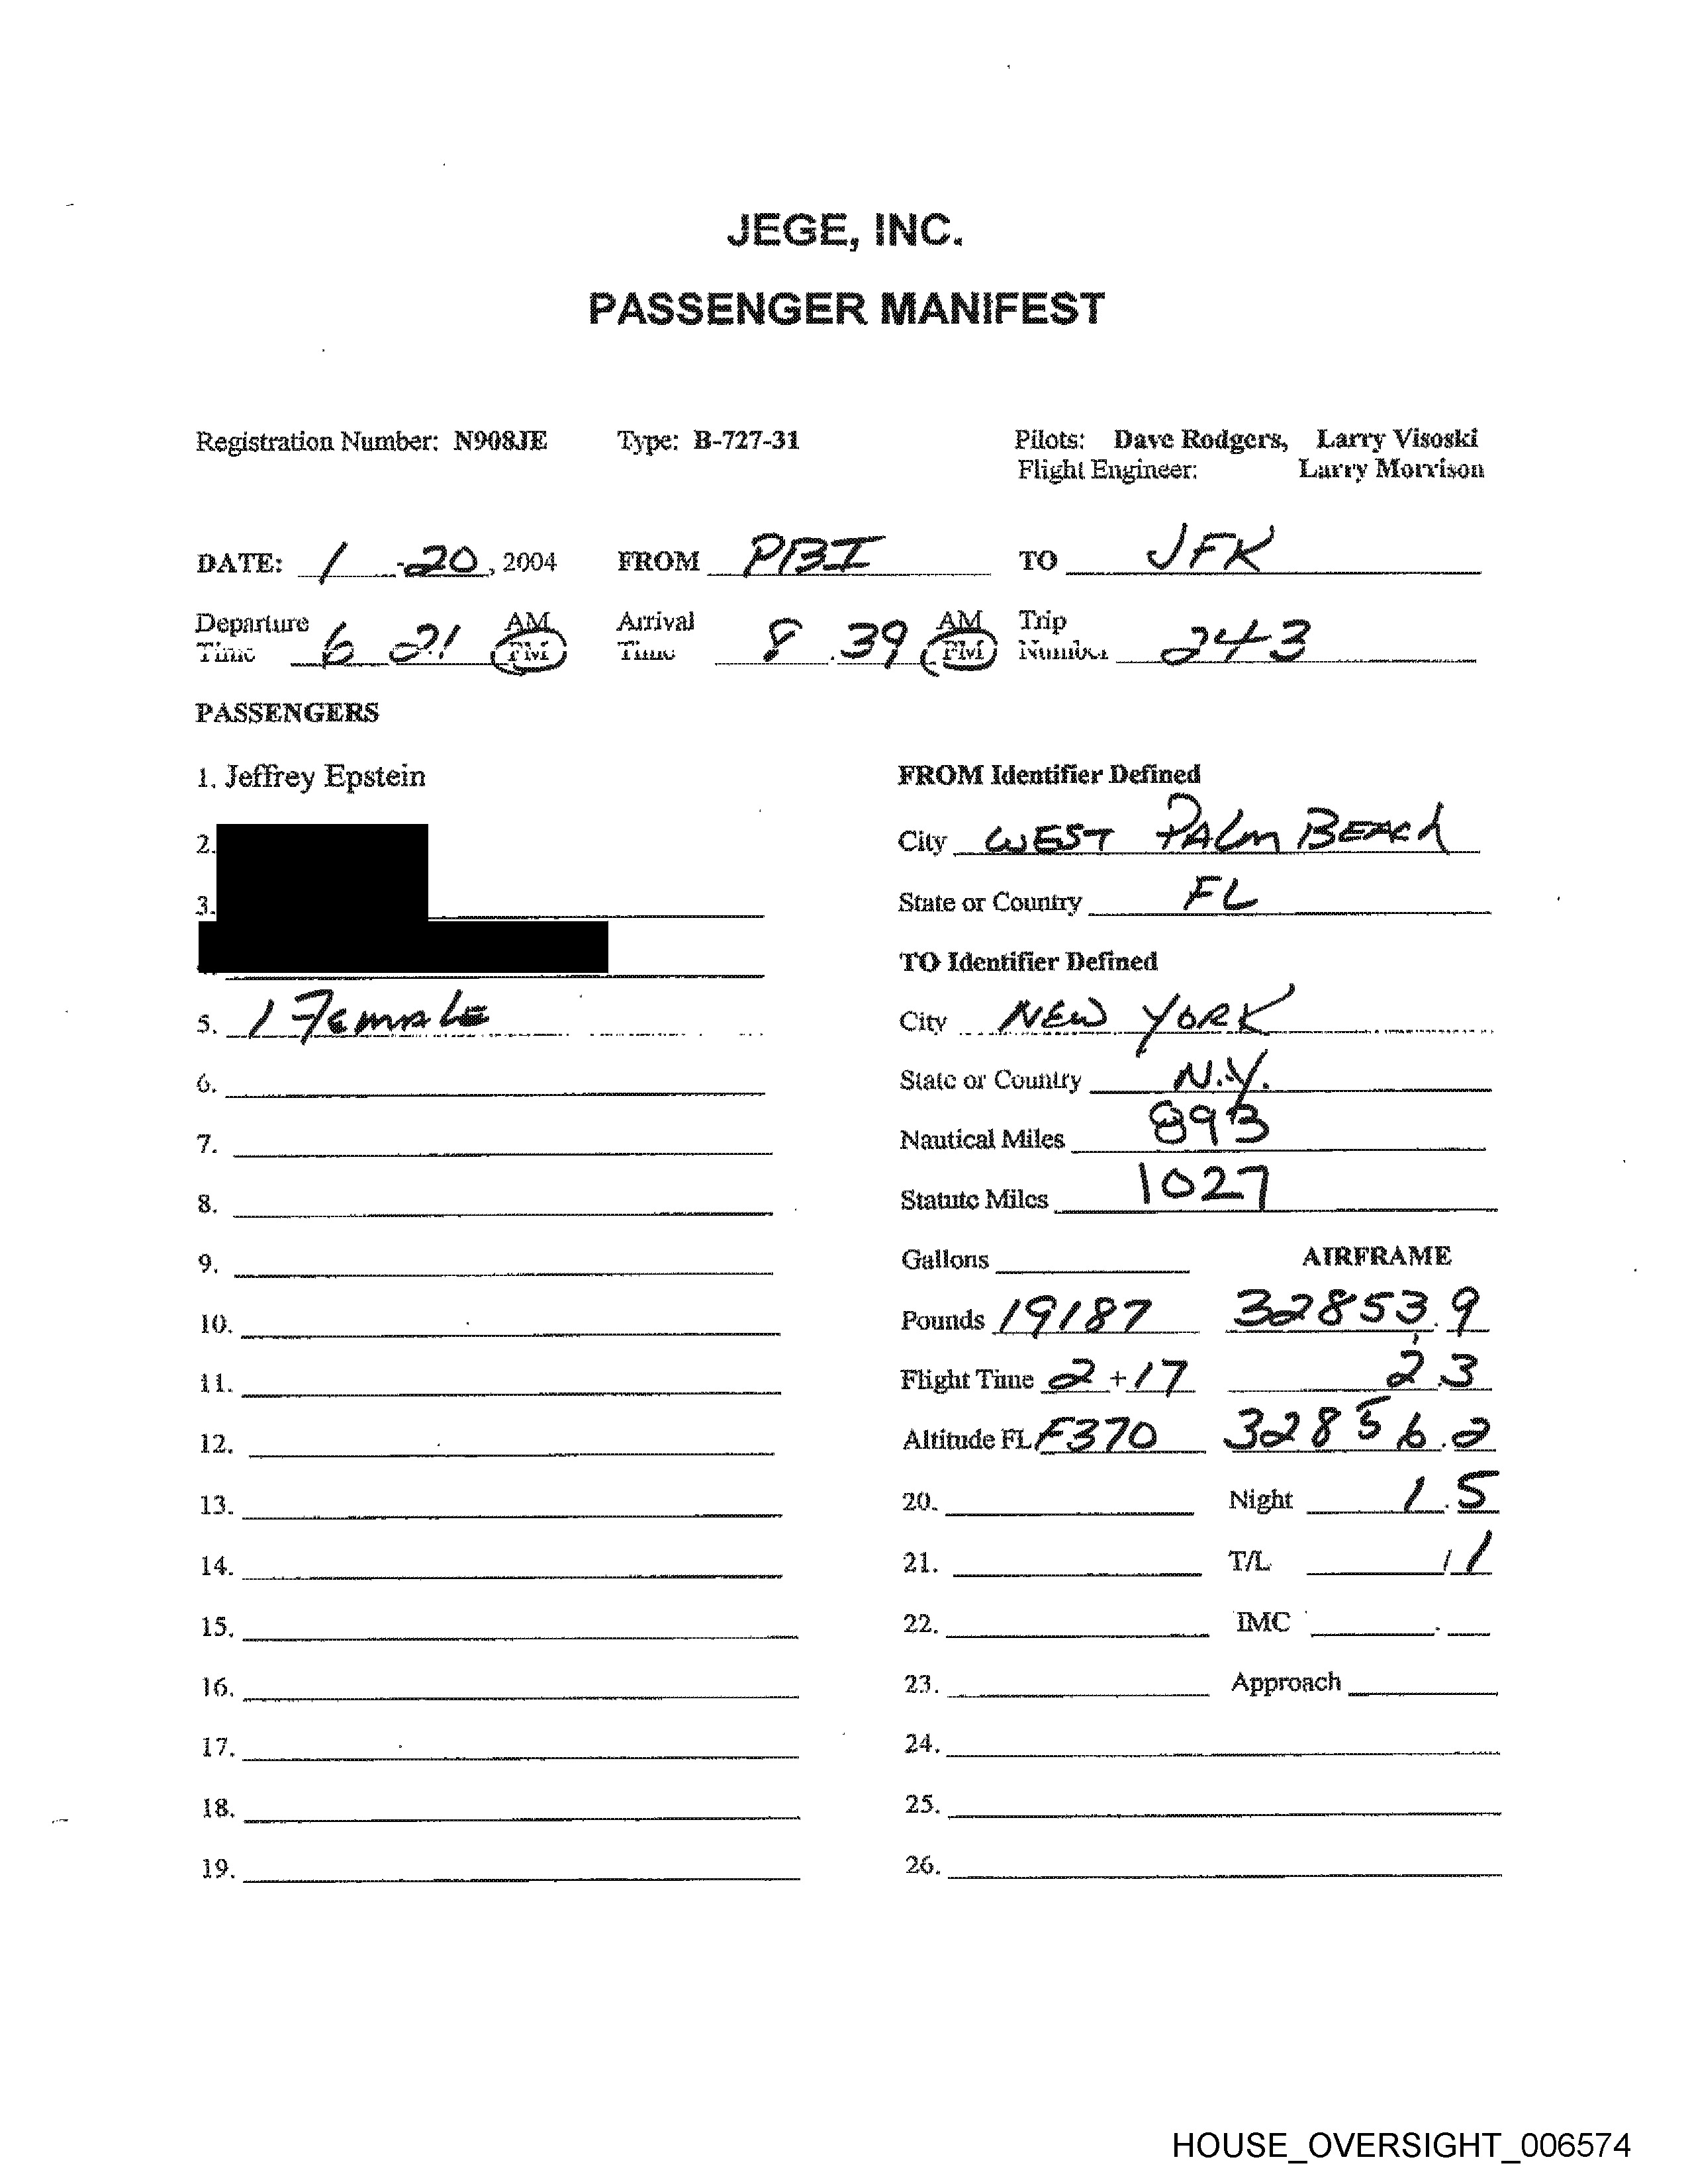 JEGE, INC.
PASSENGER MANIFEST
Registration Number: N908JE Type: B-727-31 Pilots: Dave Rodgers, Larry Visoski
Flight Engineer: Larry Morrison
DATE: 1 -20, 2004 FROM PBI TO JFK
Departure Time 6 21 AM PM Arrival Time 8.39 AM PM Trip Number 243
PASSENGERS
1. Jeffrey Epstein
2.
3.
5. 1 Female
6.
7.
8.
9.
10.
11.
12.
13.
14.
15.
16.
17.
18.
19.
FROM Identifier Defined
City WEST PALM BEACH
State or Country FL
TO Identifier Defined
City NEW YORK
State or Country N.Y.
Nautical Miles 893
Statute Miles 1027
Gallons AIRFRAME
Pounds 19187 32853.9
Flight Time 2 + 17 2.3
Altitude FL F370 32856.2
20. Night 1.5
21. T/L 1/1
22. IMC .
23. Approach
24.
25.
26.
HOUSE_OVERSIGHT_006574